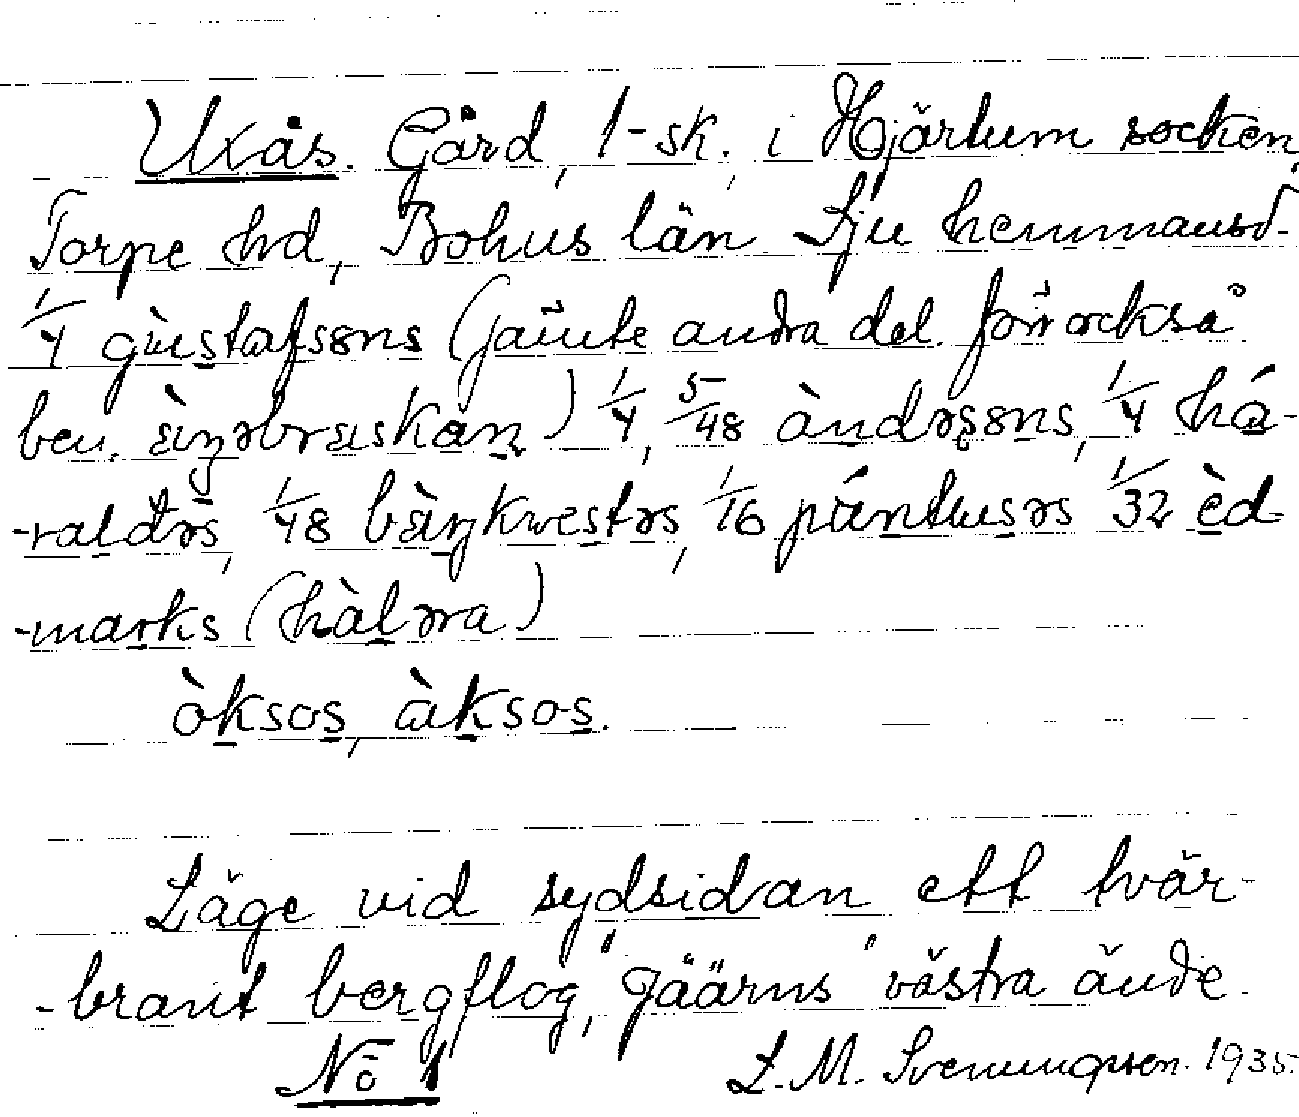 Uxås. Gård, 1-sk. i Hjärtum socken,
Torpe hd, Bohus län Sju hemmansd.
1/4 gùstafsøns (jämte andra del. förr också
ben. ) 1/4, 5/48 àndrəsøns, 1/4 há-
-raldəs, 1/48 bàŋkwestəs, 1/16 pántusəs 1/32 èd-
-marks (hàləra)
òksos, àksos.
Läge vid sydsidan ett tvär-
-brant bergflog, "Jäärns" västra ände.
No 1 L. M. Svenungsen. 1935.